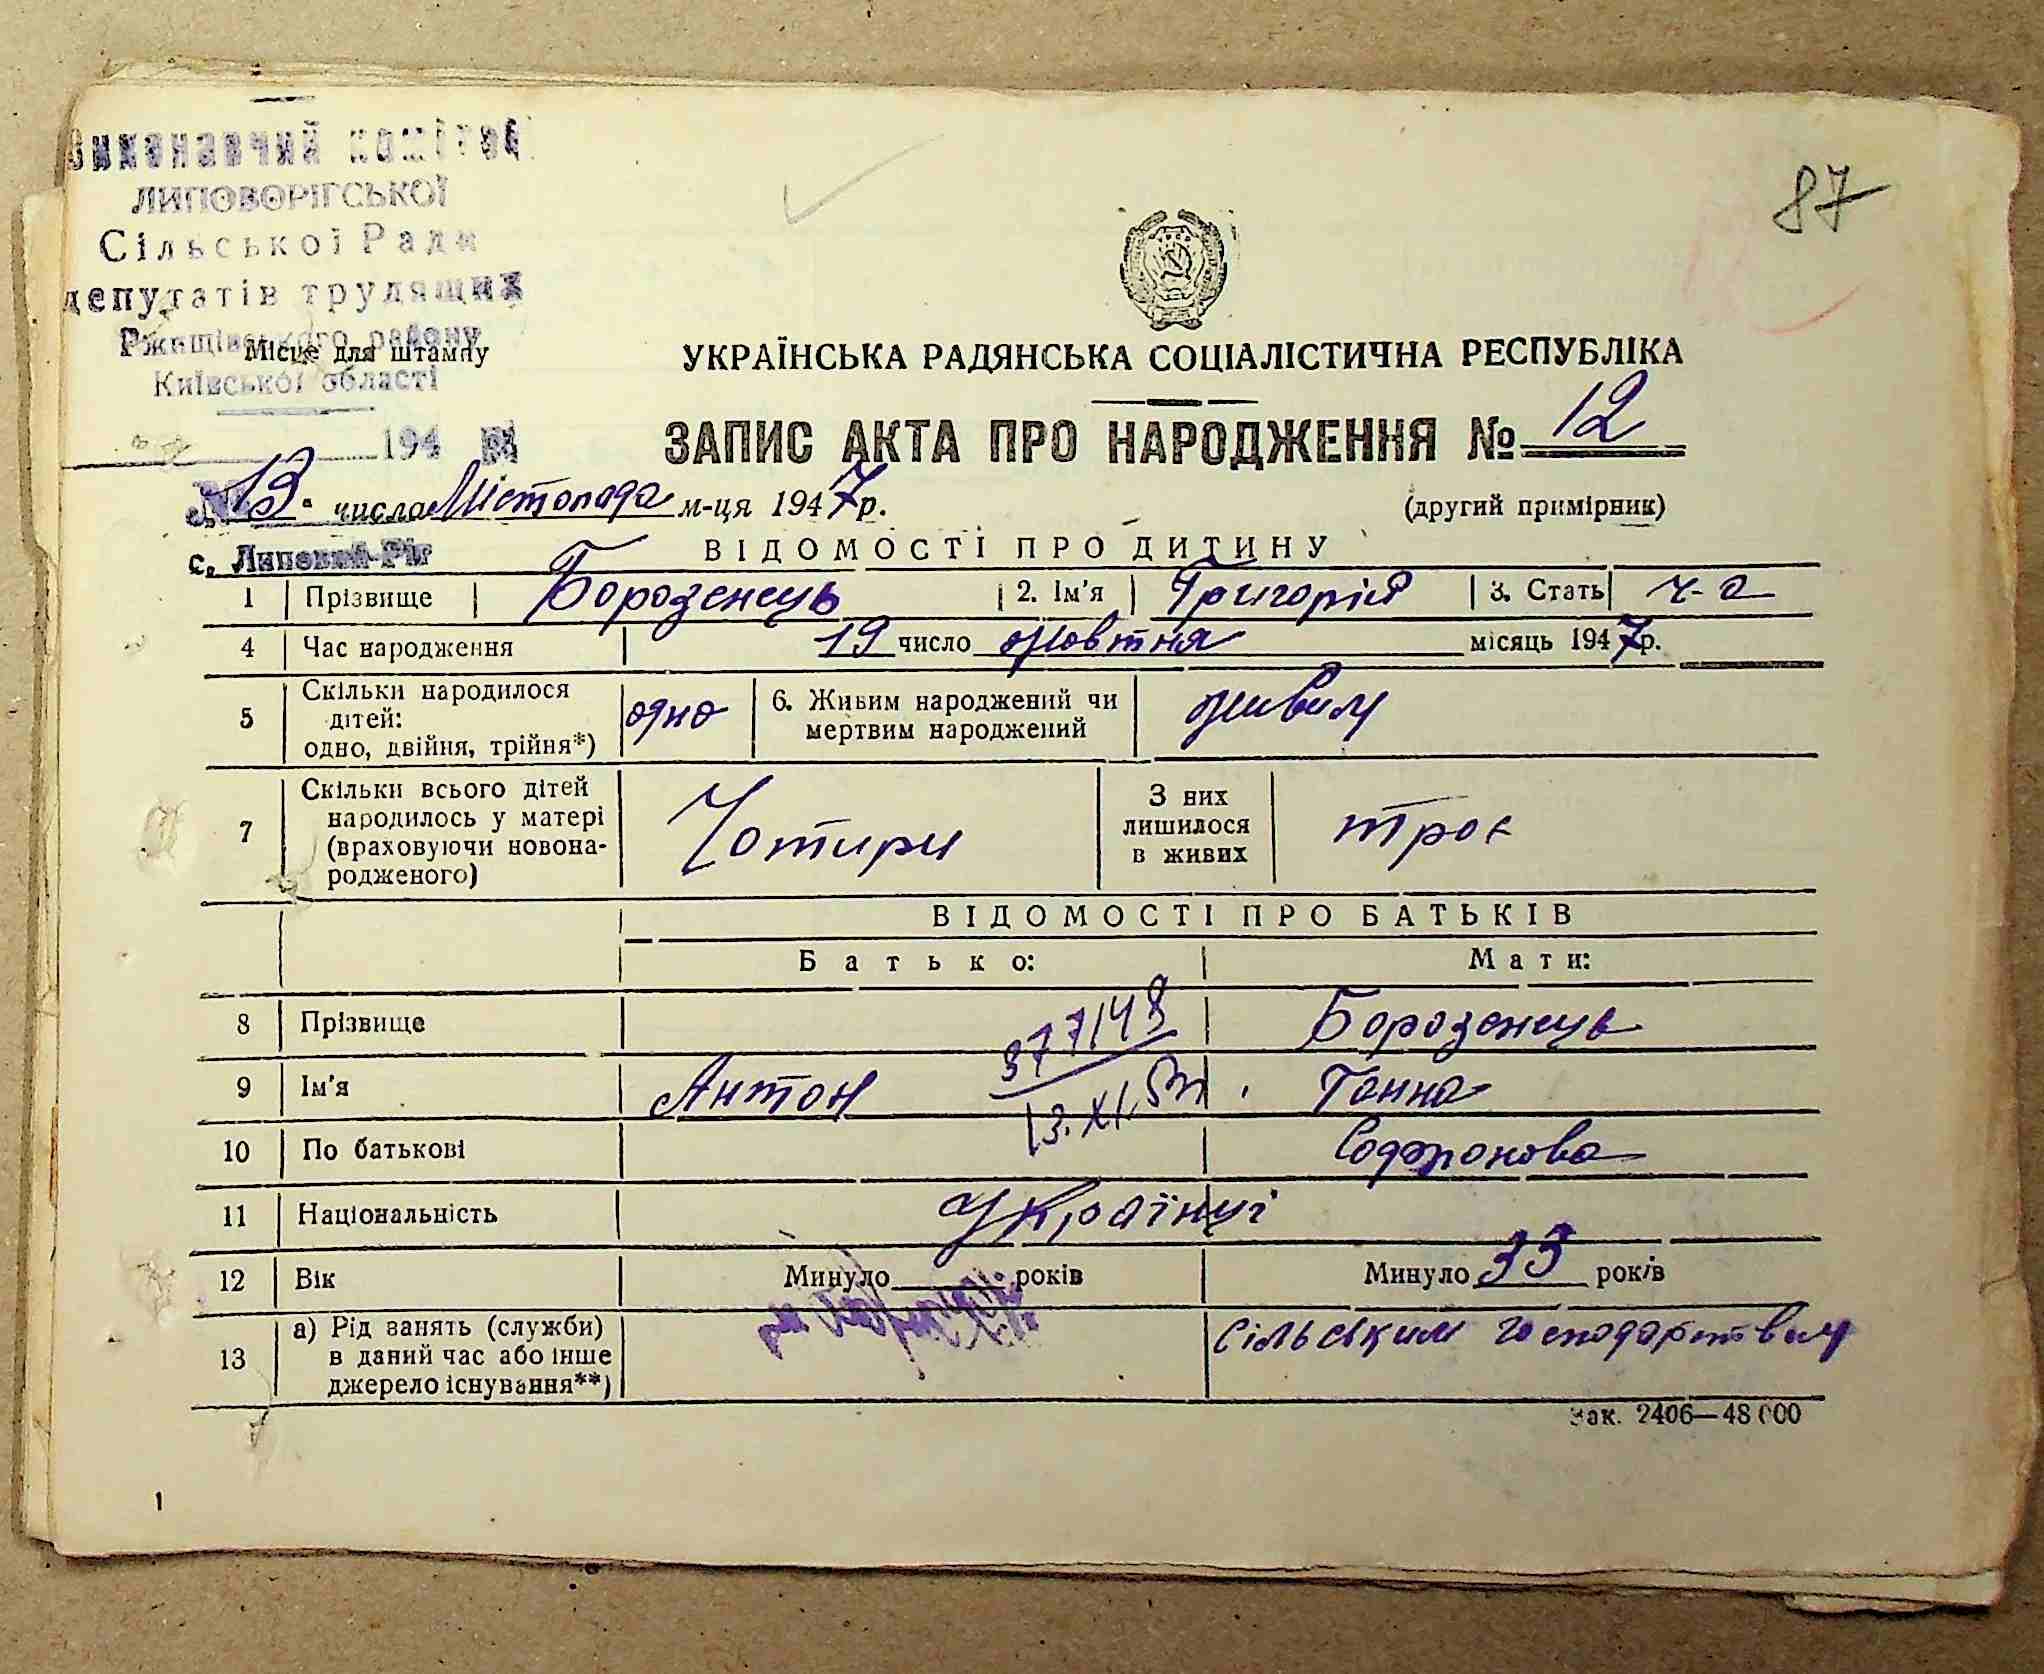 Виконавчий комітет
ЛИПОВОРІГСЬКОЇ
Сільської Ради
депутатів трудящих
Ржищівського району
Місце для штампу
Київської області
194
87
УКРАЇНСЬКА РАДЯНСЬКА СОЦІАЛІСТИЧНА РЕСПУБЛІКА
ЗАПИС АКТА ПРО НАРОДЖЕННЯ № 12
13. числа Лістопада м-ця 1947р.
(другий примірник)
с. Липовий-Ріг
ВІДОМОСТІ ПРО ДИТИНУ
1 Прізвище Борозенець 2. Ім'я Григорій 3. Стать ч-а
4 Час народження 19 число жовтня місяць 1947р.
5 Скільки народилося дітей: одно, двійня, трійня*) одно 6. Живим народжений чи мертвим народжений живим
7 Скільки всього дітей народилось у матері (враховуючи новонародженого) Чотири З них лишилося в живих троє
ВІДОМОСТІ ПРО БАТЬКІВ
Батько: Мати:
8 Прізвище Борозенець
377143
9 Ім'я Антон Ганна
13.XI.
10 По батькові Софронова
11 Національність Українці
12 Вік Минуло років Минуло 33 років
13 а) Рід занять (служби) в даний час або інше джерело існування**) сільським господарством
Зак. 2406—48 000
1